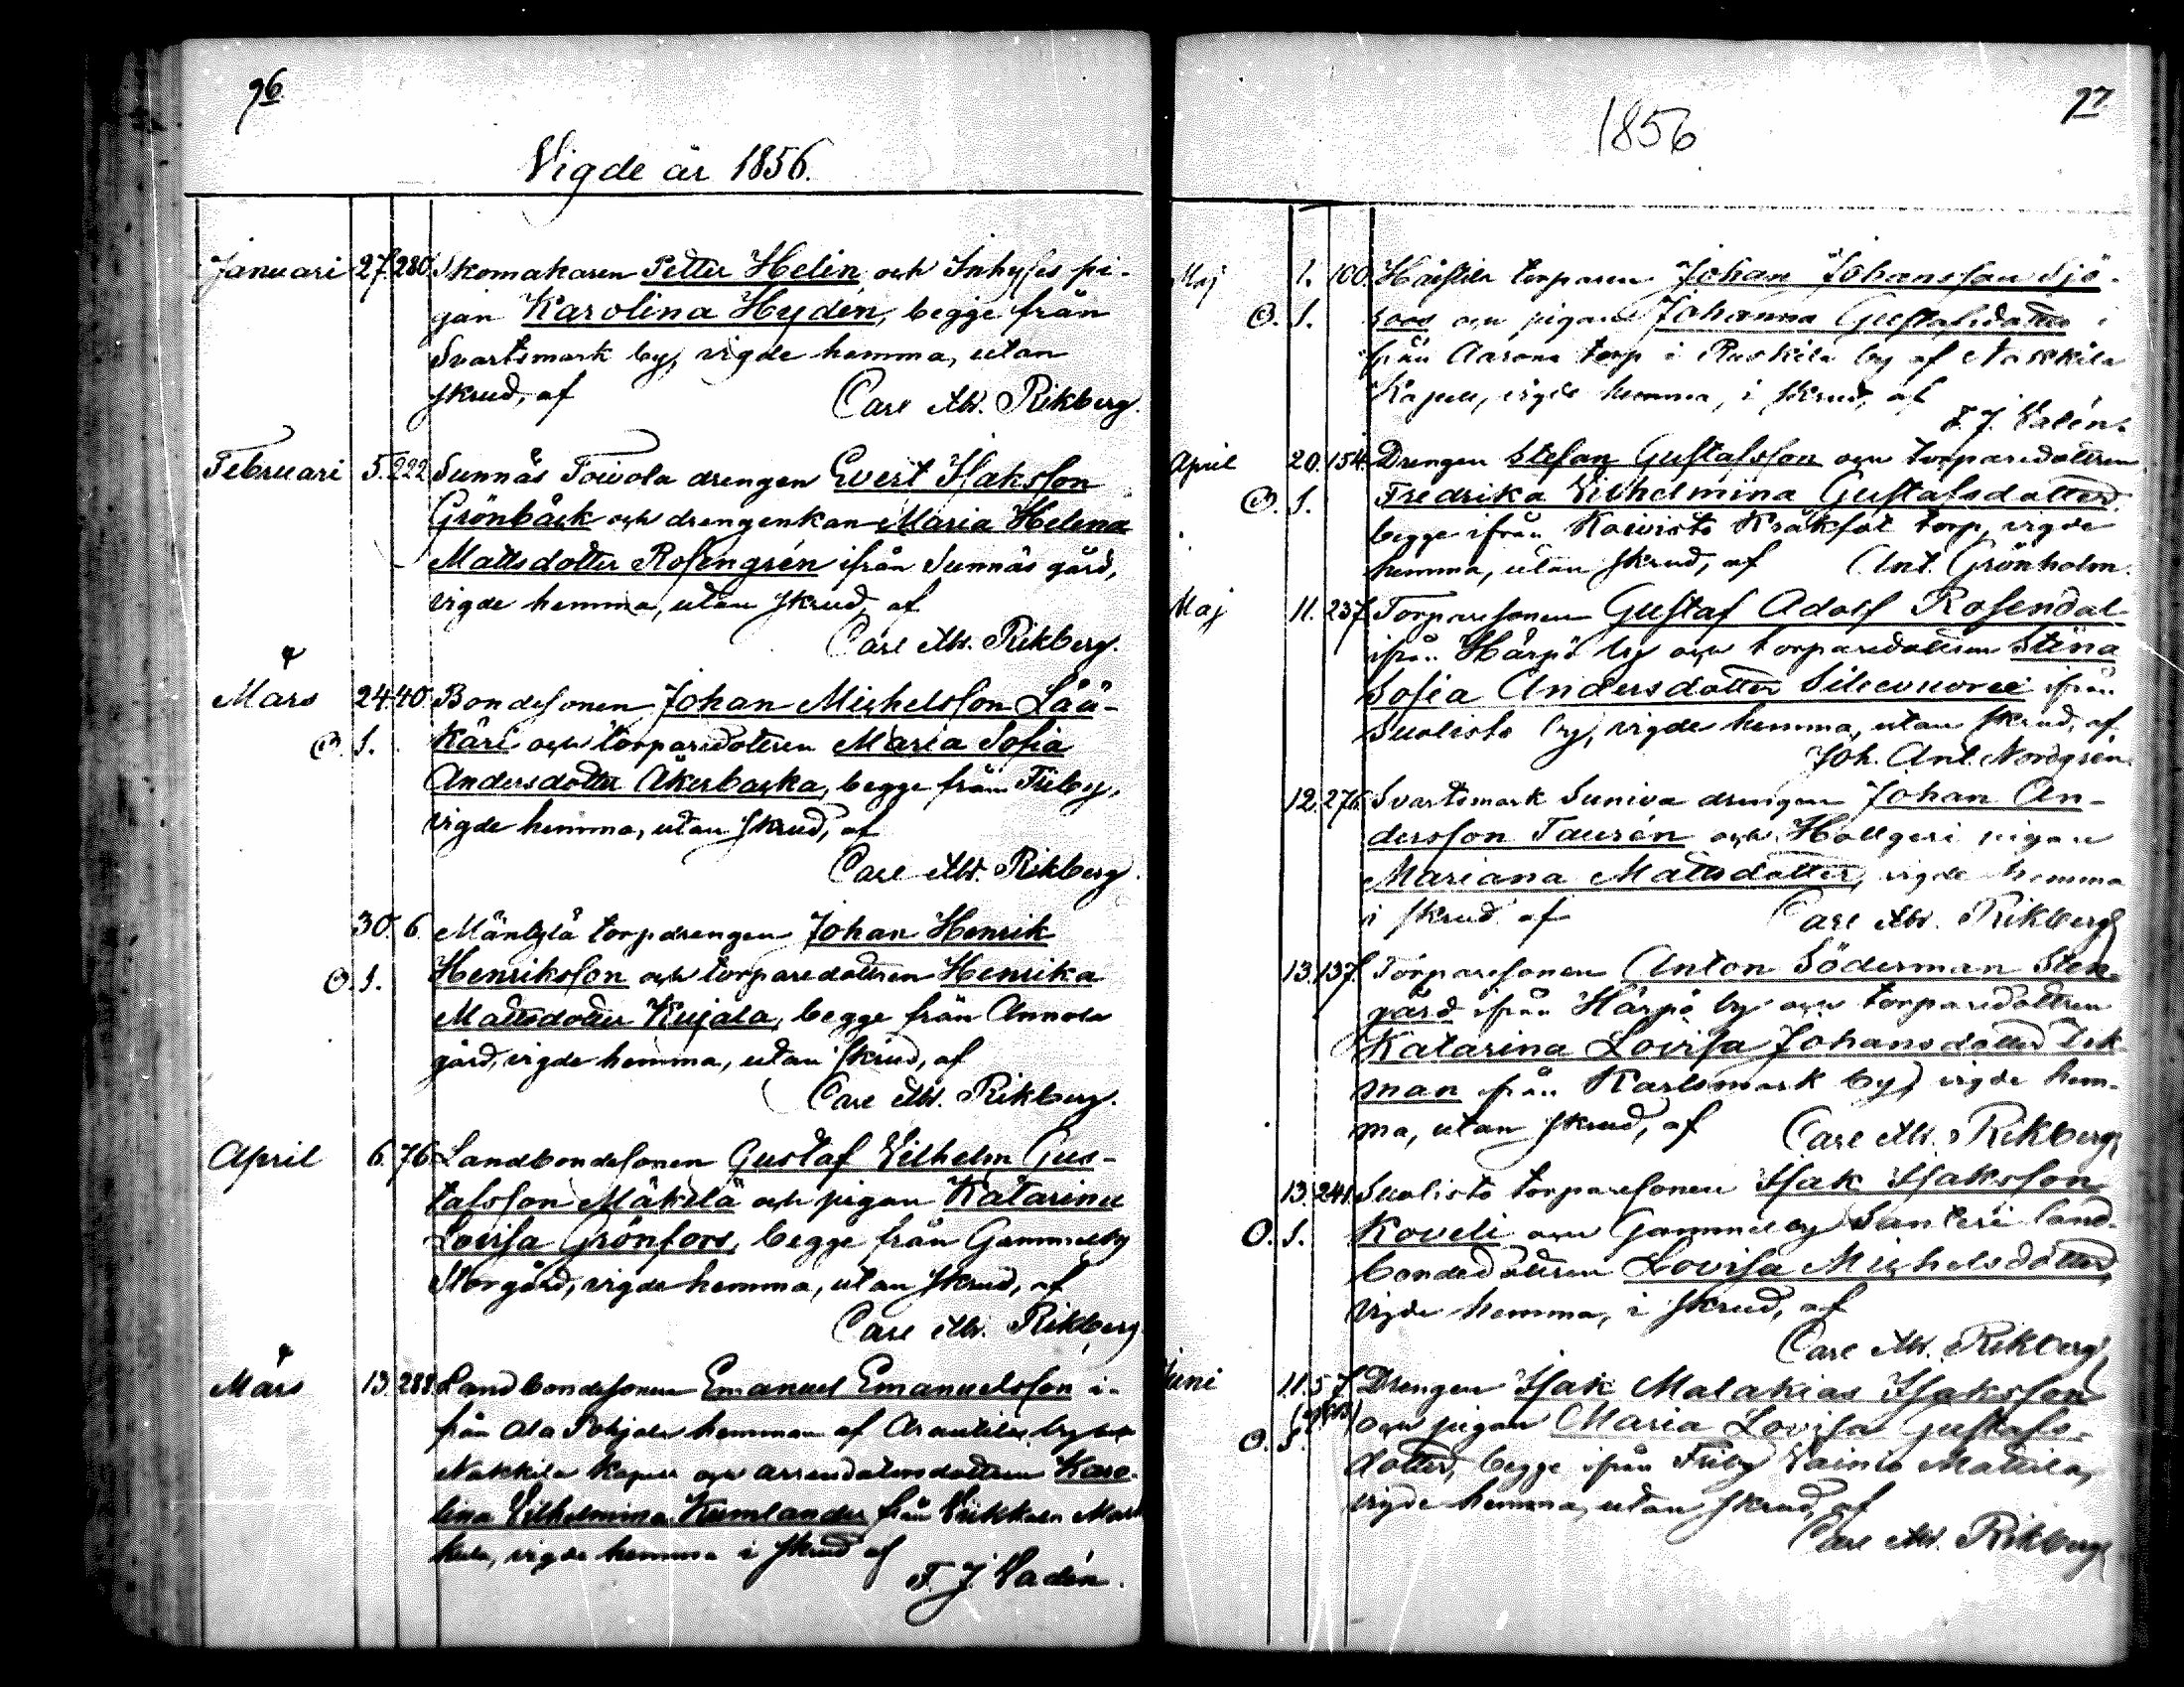 96
Vigde år 1856.
Januari 27. 280. Skomakaren Petter Helin och Inhyses pi-
gan Karolina Hydén, begge från
Svartsmark by, vigde hemma, utan
skrud, af Carl Ab. Rikberg.
Februari 5. 222. Sunnäs Toivola drengen Evert Isaksson
Grönbäck och drengenkan Maria Helena
Mattsdotter Rosengrén ifrån Sunnäs gård,
vigde hemma, utan skrud, af
Carl Ab. Rikberg.
Mars 24. 40. Bondesonen Johan Michelsson Lau-
O. S. kari och torparedottren Maria Sofia
Andersdotter Åkerbacka, begge från Friby,
vigde hemma, utan skrud, af
Carl Ab. Rikberg.
30. 6. Mäntylä torpdrengen Johan Henrik
O. S. Henriksson och torparedottren Henrika
Mattsdotter Kujala, begge från Annola
gård, vigde hemma, utan skrud, af
Carl Ab. Rikberg.
April 6. 76. Landbondesonen Gustaf Vilhelm Gus-
tafsson Mäkelä och pigan Katarina
Lovisa Grönfors, begge från Gammelby
Storgård, vigde hemma, utan skrud, af
Carl Ab. Rikberg
Mars 13. 288. Landbondesonen Emanuel Emanuelsson i-
från Ala Pohjala hemman af Arantila by
Nakkila Kapell och arrendatorsdottren Karo-
lina Vilhelmina Kumlander från
vigde hemma i skrud af
F. J. Valén.
97
1856
Maj 1. 100. torparen Johan Johansson Sjö-
O. S. roos och pigan Johanna Gustafsdotter
från Aarona torp i Ruskila by af Nakkila
Kapell, vigde hemma, i skrud, af
F. J. Valén.
April 20. 154. Drengen Stefan Gustafsson och torparedottren
O. S. Fredrika Vilhelmina Gustafsdotter
begge ifrån Koivisto Kråkfot torp, vigde
hemma, utan skrud, af Ant. Grönholm.
Maj 11. 237. Torparesonen Gustaf Adolf Rosendal
ifrån Härpö by och torparedottren Stina
Sofia Andersdotter ifrån
Suolisto by, vigde hemma, utan skrud, af
Joh. Ant. Nordgrén.
12. 276. Svartsmark Suniva drengen Johan An-
dersson Taurén och Hollgeri pigan
Mariana Mattsdotter, vigde hemma
i skrud af Carl Ab. Rikberg
13. 137. Torparesonen Anton Söderman Sten-
gård ifrån Härpö by och torparedottren
Katarina Lovisa Johansdotter Ek-
man från Karlsmark by, vigde hem-
ma, utan skrud, af Carl Ab. Rikberg
13. 241. Suolisto torparesonen Isak Isaksson
O. S. Koveli och Gammelby Santeri land-
bondedottren Lovisa Michelsdotter,
vigde hemma, i skrud, af
Carl Ab. Rikberg
Juni 11. 57. Drengen Isak Malakias Isaksson
O. S. och pigan Maria Lovisa Gustafs-
dotter, begge ifrån Friby Vainio Mattila,
vigde hemma, utan skrud, af
Carl Ab. Rikberg